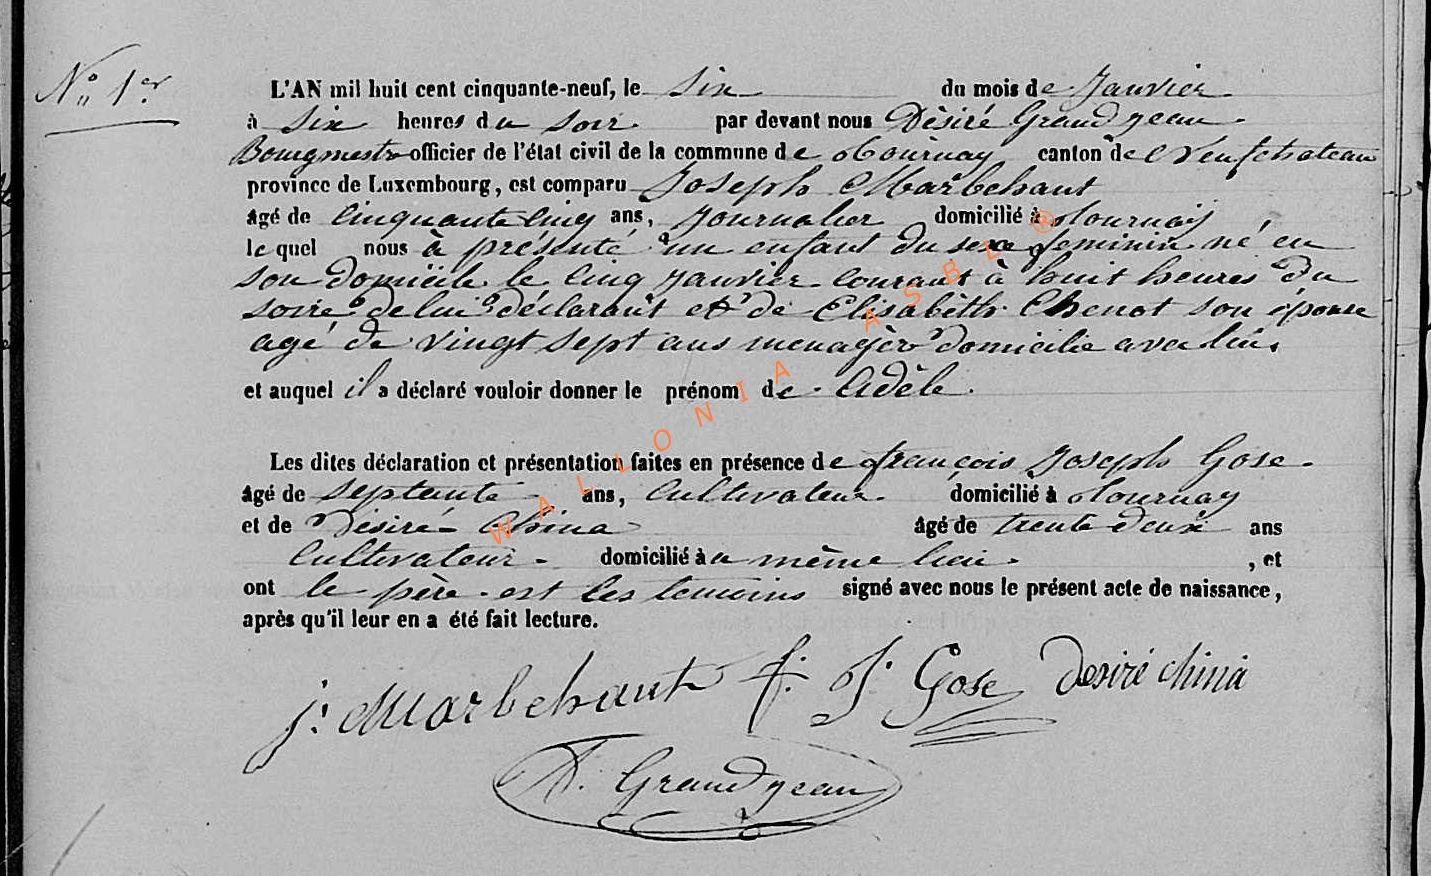 N° 1er
L'AN mil huit cent cinquante-neuf, le six du mois de Janvier
à six heures du soir par devant nous Désiré Grandjean
Bourgmestre officier de l'état civil de la commune de Tournay canton de Neufchateau
province de Luxembourg, est comparu Joseph Marbehant
âgé de cinquante cinq ans, Journalier domicilié à Tournay,
le quel nous à présenté un enfant du sexe feminin né en
son domicile le cinq Janvier courant à huit heures du
soire de lui déclarant et de Elisabeth Chenot son épouse
agé de vingt sept ans menagère domicilie avec lui.
et auquel il a déclaré vouloir donner le prénom de Adèle.
Les dites déclaration et présentation faites en présence de françois Joseph Gose.
âgé de septante ans, Cultivateur. domicilié à Tournay
et de Désiré China âgé de trente deux ans
Cultivateur. domicilié au même lieu. , et
ont le père est les temoins signé avec nous le présent acte de naissance,
après qu'il leur en a été fait lecture.
j. Marbehant f. J. Gose Desiré China
D. Grandjean
WALLONIA ASBL ®